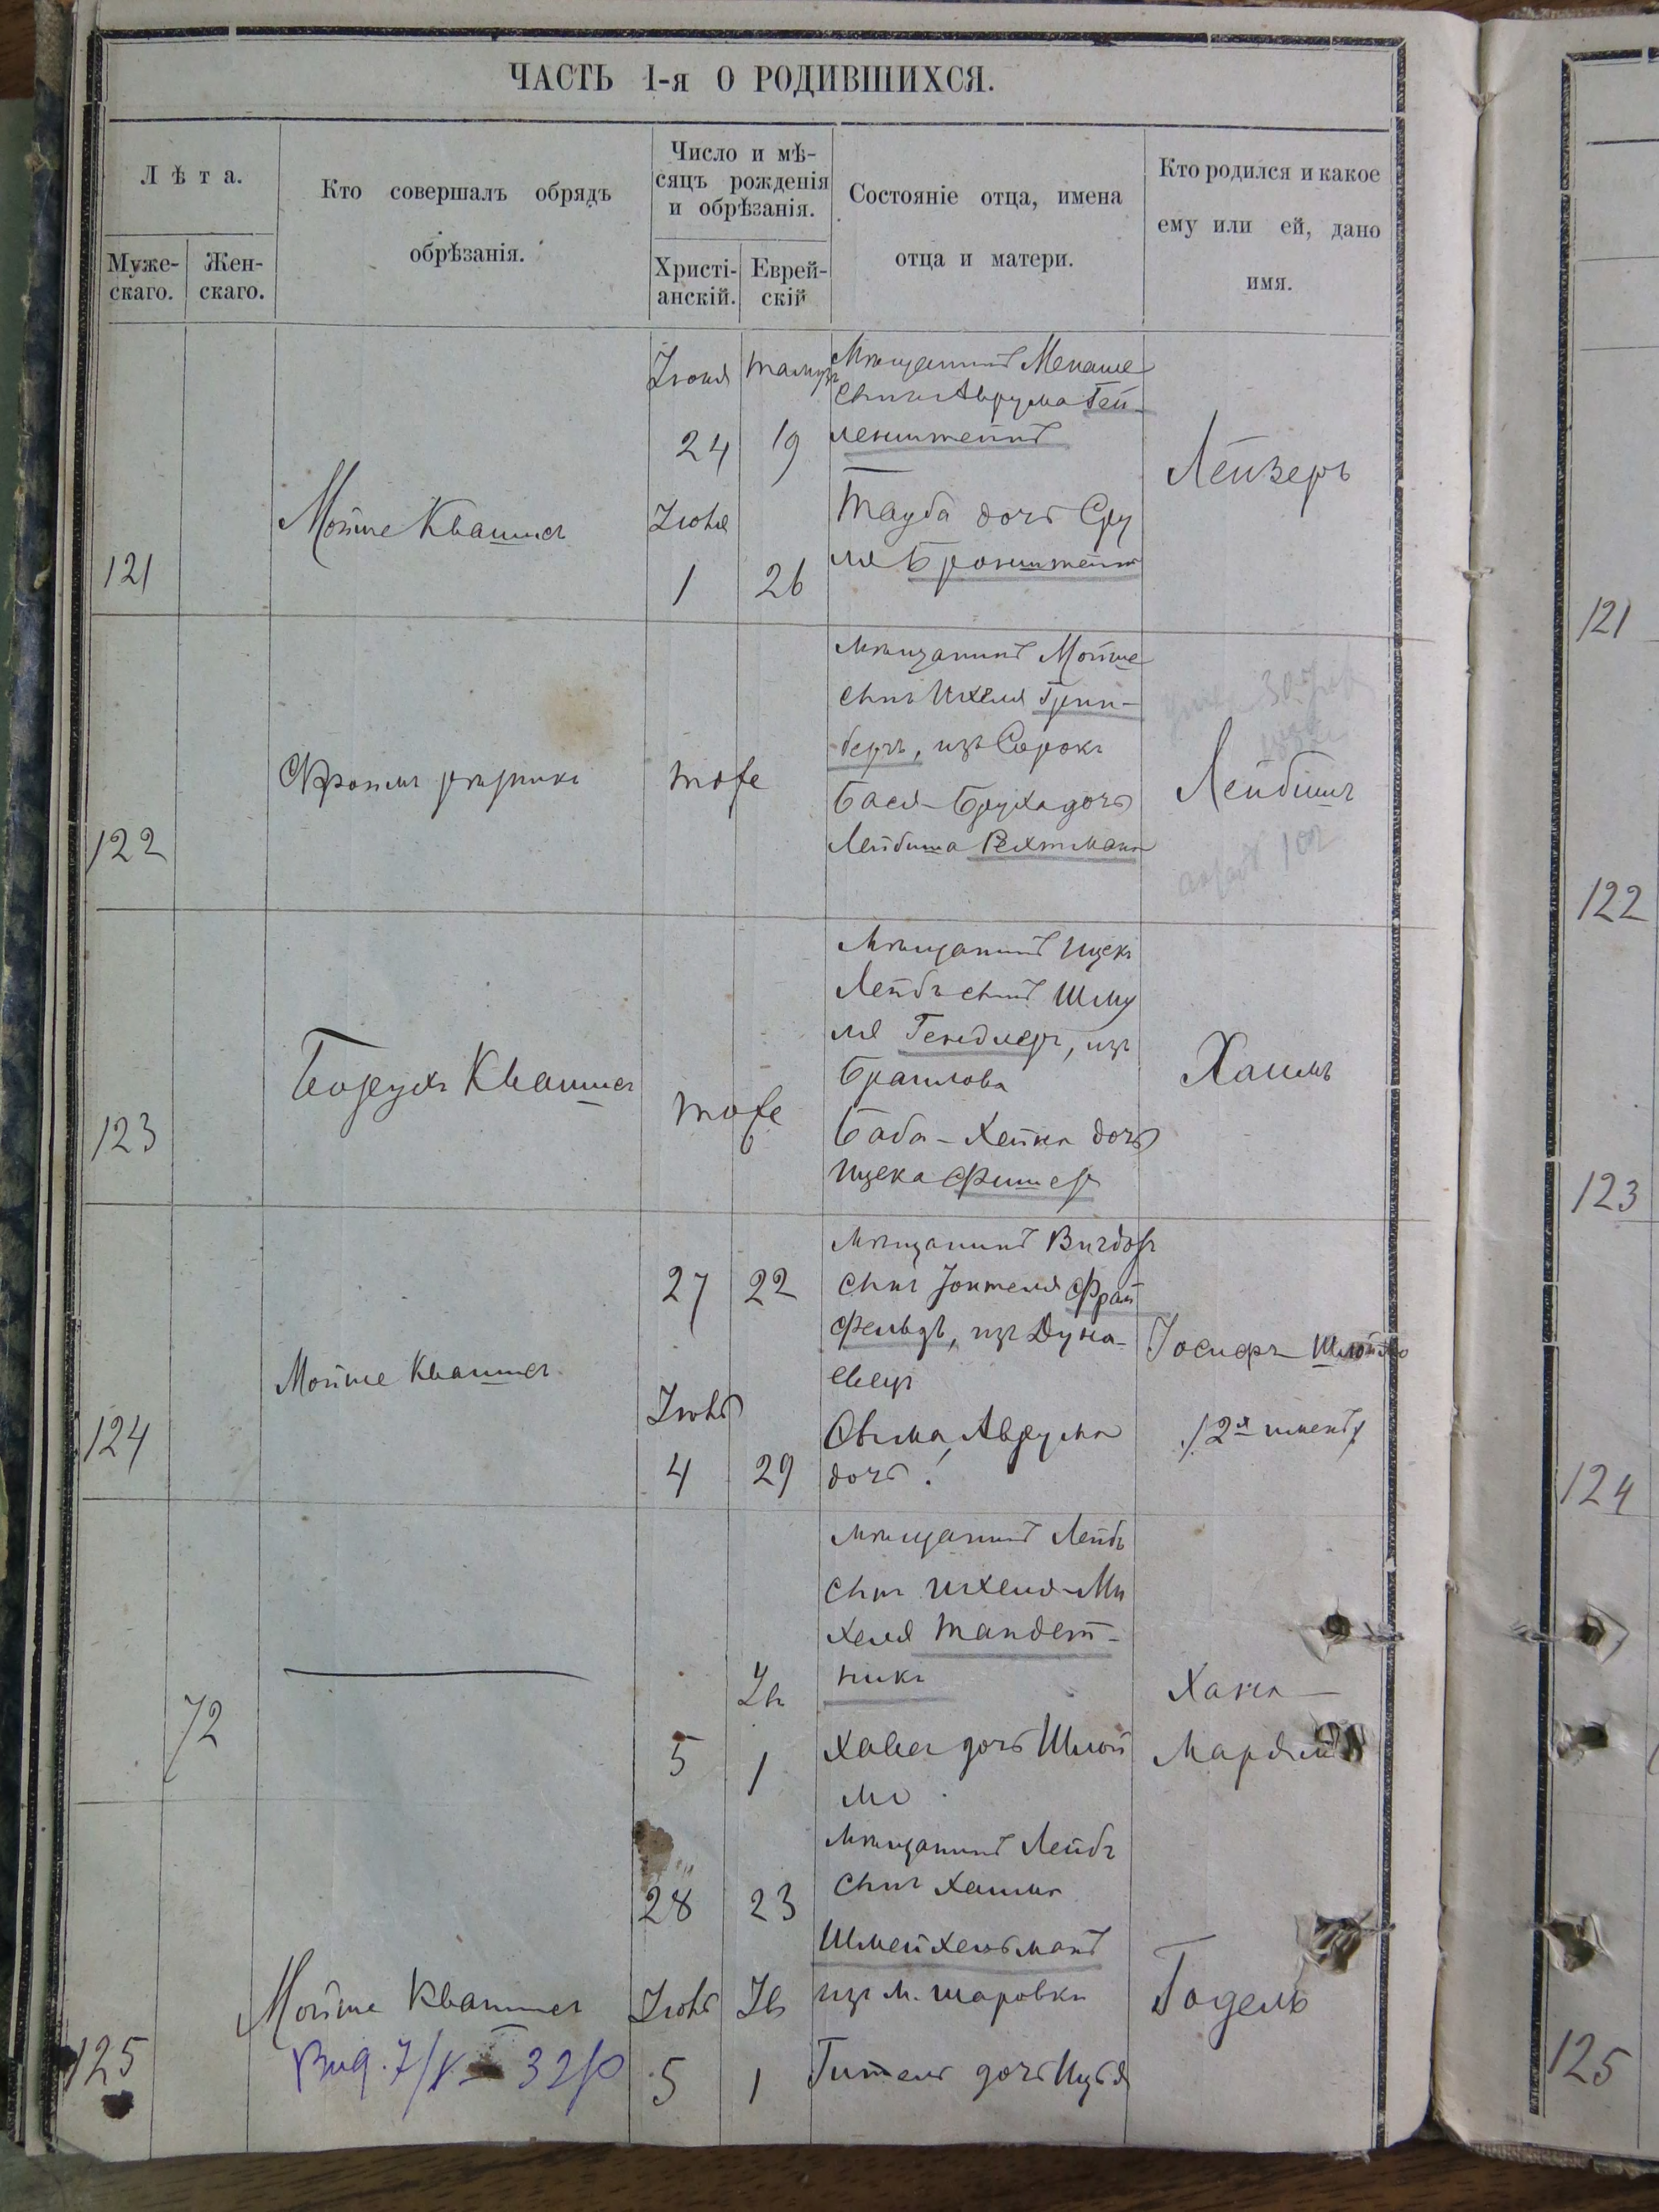 ЧАСТЬ 1-я О РОДИВШИХСЯ.
Лѣта.
Муже-
скаго.
Жен-
скаго.
Кто совершалъ обрядъ
обрѣзанія.
Число и мѣ-
сяцъ рожденія
и обрѣзанія.
Христі-
анскій.
Еврей-
скій
Состояніе отца, имена
отца и матери.
Кто родился и какое
ему или ей, дано
имя.
121
Мойше Квашис
Іюня
24
Іюля
1
Тамузъ
19
26
Мѣщанинъ Менаше
сынъ Аврума Гей-
ленштейнъ
Тауба дочь Сру
ля Бронштейнъ
Лейзеръ
122
тоже
мѣщанинъ Мойше
сынъ Ихеля Грин-
бергъ, изъ Сорокъ
Бася-Бруха дочь
Лейбиша Рехтмана
Лейбишъ
123
Борухъ Квашис
тоже
Мѣщанинъ Ицекъ
Лейбъ сынъ Шму
ля Гендлеръ, изъ
Браилова
Баба-Хейка дочь
Ицека Фишеръ
Хаимъ
124
Мойше Квашис
27
Іюль
4
22
29
мѣщанинъ Вигдоръ
сынъ Іоктеля Фрай
фельдъ, изъ Дуна-
евецъ
Аврума
дочь
Іосифъ-Шлойма
/2я имени/
72
5
Ав
1
мѣщанинъ Лейбъ
сынъ Ихеля-Ми
хеля Тандет-
никъ
Хава дочь Шлой
мы
Хана-
Марьям
125
Мойше Квашис
28
Іюль
5
23
Ав
1
мѣщанинъ Лейбъ
сынъ Хаима
Шмейхельманъ
изъ м. Шаровки
Гитель дочь Ицья
Годель
121
122
123
124
125